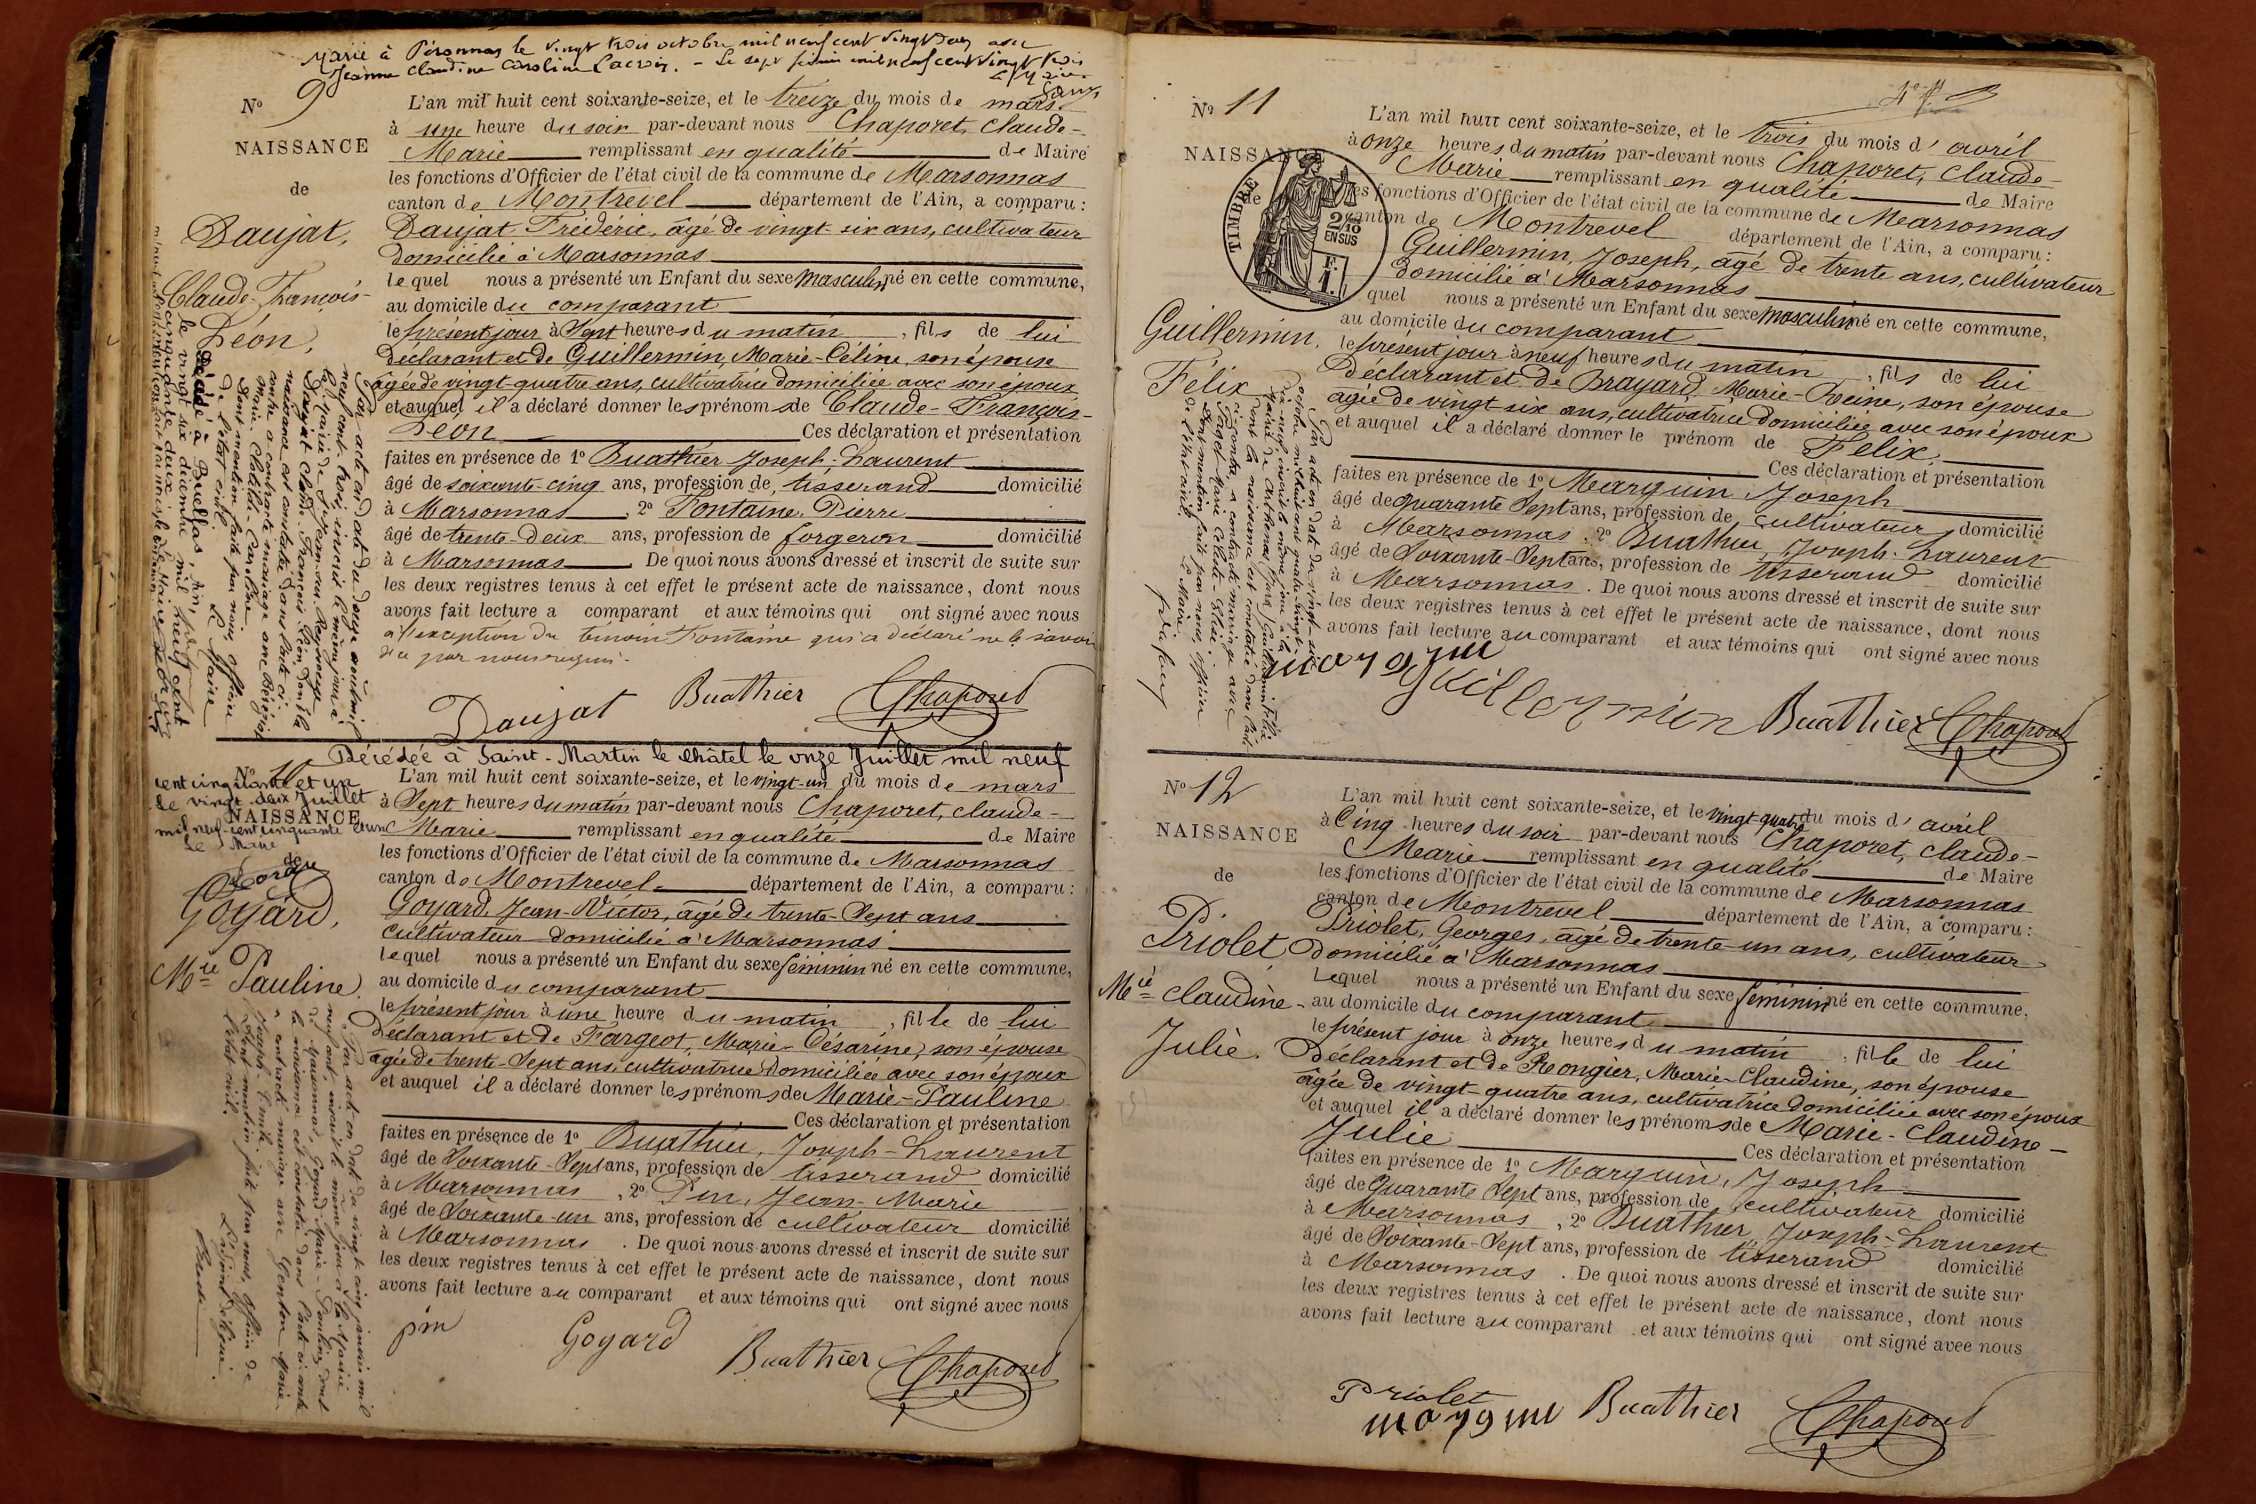 Marié à Péronnas le vingt trois octobre mil neuf cent vingt deux avec
Jeanne Claudine Caroline Lacroix. - Le sept février mil neuf cent vingt trois
Le Maire
N° 9
NAISSANCE
de
Daujat,
Claude-François-
Léon,
L'an mil huit cent soixante-seize, et le treize du mois de mars
à une heure du soir par-devant nous Chaporet, Claude-
Marie remplissant en qualité de Maire
les fonctions d'Officier de l'état civil de la commune de Marsonnas
canton de Montrevel département de l'Ain, a comparu :
Daujat Frédéric, âgé de vingt-six ans, cultivateur
domicilié à Marsonnas
lequel nous a présenté un Enfant du sexe masculin né en cette commune,
au domicile du comparant
le présent jour à Sept heures du matin, fils de lui
Déclarant et de Guillermin, Marie-Céline, son épouse
âgée de vingt-quatre ans, cultivatrice domiciliée avec son époux
et auquel il a déclaré donner les prénoms de Claude-François-
Léon Ces déclaration et présentation
faites en présence de 1° Buathier Joseph-Laurent
âgé de soixante-cinq ans, profession de tisserand domicilié
à Marsonnas, 2° Fontaine, Pierre
âgé de trente-deux ans, profession de forgeron domicilié
à Marsonnas De quoi nous avons dressé et inscrit de suite sur
les deux registres tenus à cet effet le présent acte de naissance, dont nous
avons fait lecture a comparant et aux témoins qui ont signé avec nous
à l'exception du témoin Fontaine qui a déclaré ne le savoir
de ce par nous requis.
Daujat Buathier Chaporet
Par acte en date du douze août mil
neuf cent trois, inscrit le même jour à
la mairie de
Daujat Claude-François Léon dont la
naissance est constatée dans l'acte ci-
contre a contracté mariage avec
Marie Clotilde Caroline
Dont mention faite par nous, officier
de l'état civil. Le Maire
Décédé à Buellas, Ain,
le vingt six décembre mil neuf cent
cinquante deux
Décédée à Saint-Martin le châtel le onze Juillet mil neuf
cent cinquante et un
Le vingt deux Juillet
mil neuf-cent cinquante et un
Le Maire
N° 10
NAISSANCE
de
Goyard,
Mie Pauline.
L'an mil huit cent soixante-seize, et le vingt-un du mois de mars
à Sept heures du matin par-devant nous Chaporet, Claude-
Marie remplissant en qualité de Maire
les fonctions d'Officier de l'état civil de la commune de Marsonnas
canton de Montrevel département de l'Ain, a comparu :
Goyard, Jean-Victor, âgé de trente-Sept ans
cultivateur domicilié à Marsonnas
lequel nous a présenté un Enfant du sexe féminin né en cette commune,
au domicile du comparant
le présent jour à une heure du matin, fille de lui
Déclarant et de Fargeot, Marie-Césarine, son épouse
âgée de trente-Sept ans, cultivatrice domiciliée avec son époux
et auquel il a déclaré donner les prénoms de Marie-Pauline
Ces déclaration et présentation
faites en présence de 1° Buathier, Joseph-Laurent
âgé de Soixante-Sept ans, profession de tisserand domicilié
à Marsonnas, 2° Pin, Jean-Marie
âgé de Soixante-un ans, profession de cultivateur domicilié
à Marsonnas. De quoi nous avons dressé et inscrit de suite sur
les deux registres tenus à cet effet le présent acte de naissance, dont nous
avons fait lecture au comparant et aux témoins qui ont signé avec nous
pin Goyard Buathier Chaporet
Par acte en date du vingt cinq janvier mil
neuf cent, inscrit le même jour à la Mairie
de Marsonnas, Goyard Marie-Pauline dont
la naissance est constatée dans l'acte ci-contre
a contracté mariage avec Genton
Joseph-Emile
Dont mention faite par nous, officier de
l'état civil.
N° 11
NAISSANCE
de
TIMBRE
2/10 EN SUS
F. 1.
Guillermin,
Félix
L'an mil huit cent soixante-seize, et le trois du mois d'avril
à onze heures du matin par-devant nous Chaporet, Claude-
Marie remplissant en qualité de Maire
les fonctions d'Officier de l'état civil de la commune de Marsonnas
canton de Montrevel département de l'Ain, a comparu :
Guillermin, Joseph, âgé de trente ans, cultivateur
domicilié à Marsonnas
quel nous a présenté un Enfant du sexe masculin né en cette commune,
au domicile du comparant
le présent jour à neuf heures du matin, fils de lui
Déclarant et de Brayard, Marie-Reine, son épouse
âgée de vingt six ans, cultivatrice domiciliée avec son époux
et auquel il a déclaré donner le prénom de Félix.
Ces déclaration et présentation
faites en présence de 1° Marguin, Joseph
âgé de quarante Sept ans, profession de cultivateur domicilié
à Marsonnas. 2° Buathier, Joseph-Laurent
âgé de Soixante-Sept ans, profession de tisserand domicilié
à Marsonnas. De quoi nous avons dressé et inscrit de suite sur
les deux registres tenus à cet effet le présent acte de naissance, dont nous
avons fait lecture au comparant et aux témoins qui ont signé avec nous
marguin guillermin Buathier Chaporet
Par acte en date du vingt-six
octobre mil huit cent quatre vingt-
dix-neuf, inscrit le même jour à la
Mairie de Guillermin Félix
dont la naissance est constatée dans l'acte
ci-contre, a contracté mariage avec
Dont mention faite par nous, officier
de l'état civil. Le Maire
N° 12
NAISSANCE
de
Priolet
Mie Claudine-
Julie.
L'an mil huit cent soixante-seize, et le vingt-quatre du mois d'avril
à Cinq heures du soir par-devant nous Chaporet, Claude-
Marie remplissant en qualité de Maire
les fonctions d'Officier de l'état civil de la commune de Marsonnas
canton de Montrevel département de l'Ain, a comparu :
Priolet, Georges, âgé de trente-un ans, cultivateur
domicilié à Marsonnas
Lequel nous a présenté un Enfant du sexe féminin né en cette commune,
au domicile du comparant
le présent jour à onze heures du matin, fille de lui
Déclarant et de Rongier, Marie-Claudine, son épouse
âgée de vingt-quatre ans, cultivatrice domiciliée avec son époux
et auquel il a déclaré donner les prénoms de Marie-Claudine-
Julie Ces déclaration et présentation
faites en présence de 1° Marguin, Joseph
âgé de Quarante Sept ans, profession de cultivateur domicilié
à Marsonnas, 2° Buathier, Joseph-Laurent
âgé de Soixante-Sept ans, profession de tisserand domicilié
à Marsonnas. De quoi nous avons dressé et inscrit de suite sur
les deux registres tenus à cet effet le présent acte de naissance, dont nous
avons fait lecture au comparant et aux témoins qui ont signé avec nous
Priolet
marguin Buathier Chaporet